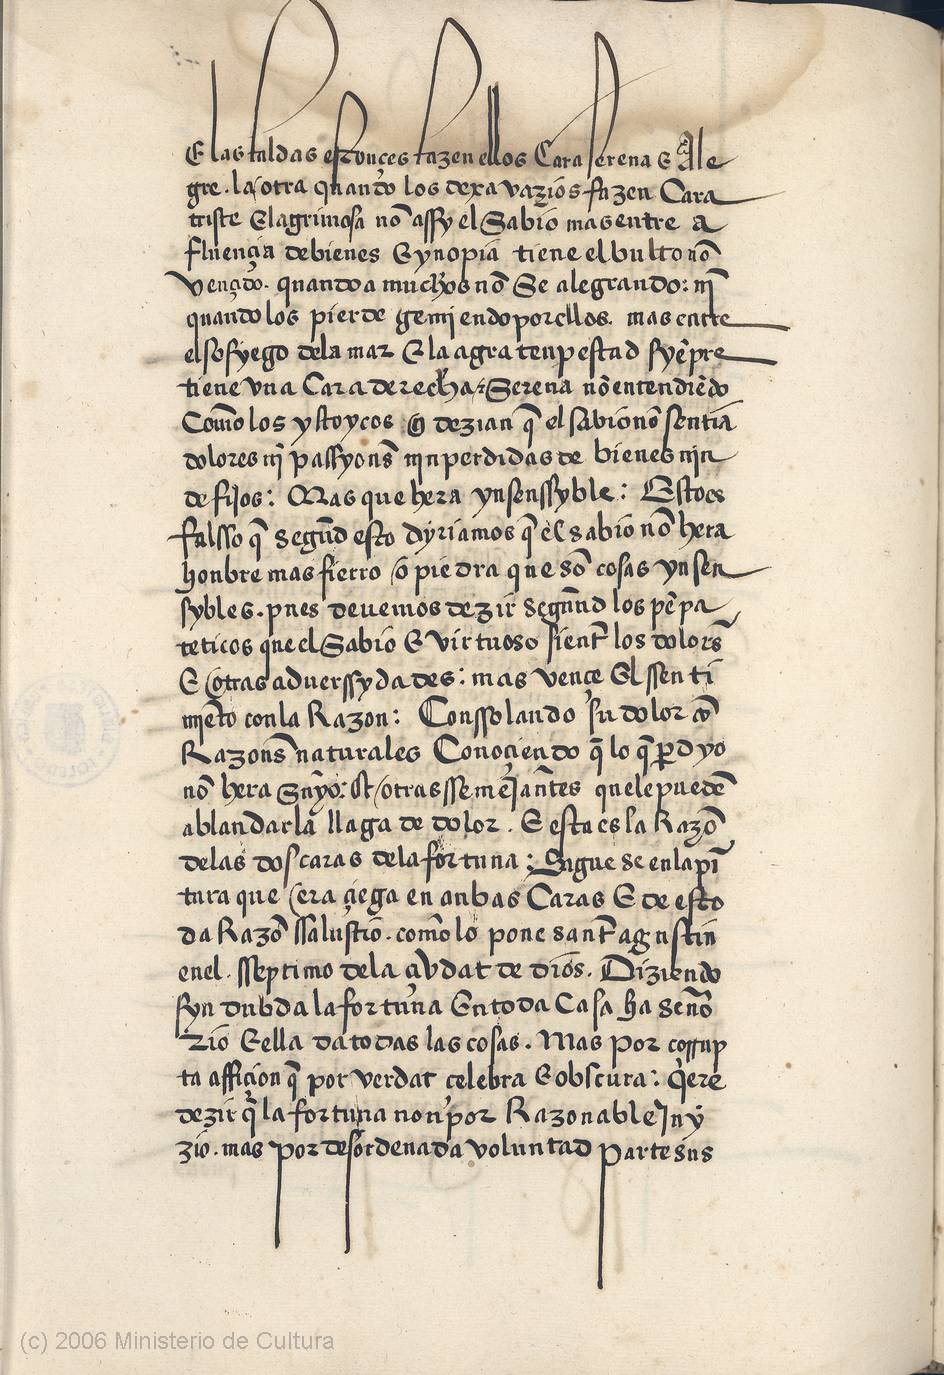 E las faldas estonçes fazen ellos Cara serena E Ale
gre. la otra quando los dexa vazios fazen Cara
triste E lagrimosa nõ assy el Sabio mas entre a
fluença de bienes E ynopia tiene el bulto nõ
vençido. quando a muchos nõ Se alegrando: nĩ
quando los pierde gemiendo por ellos. mas entre
el sosyego dela mar E la agra tenpestad syẽpre
tiene vna Cara derecha: Serena nõ entendiẽdo
Como los ystoycos q̃ dezian q̃ el sabio nõ sentia
dolores nĩ passyons̃ nin perdidas de bienes nin
de fijos: Mas que hera ynsenssyble: Esto es
falsso q̃ segũd esto dyriamos q̃ el sabio nõ hera
honbre mas fierro o piedra que sõ cosas ynsen
sybles. pues deuemos dezir segũnd los pẽpa
teticos que el Sabio E virtuoso sient̃ los dolors̃
E otras aduerssydades: mas vence El ssenti
miẽto con la Razon: Conssolando su dolor cõ
Razons̃ naturales Conoçiendo q̃ lo q̃ perdyo
nõ hera Suyo: Et otras ssemejãntes que le puedẽ
ablandar la llaga de dolor. E esta es la Razõ
delas dos caras dela fortuna: Sigue se en la pĩ
tura que era çiega en anbas Caras E de esto
da Razõ ssalustio. como lo pone sant̃ agustin
en el. sseptimo dela çivdat de dios. Diziendo
syn dubda la fortuna En toda Casa ha seño
rio E ella da todas las cosas. Mas por corrup
ta afficion q̃ por verdat celebra E obscura: q̃ere
dezir q̃ la fortuna non por Razonable Juy
zio. mas por desordenada voluntad parte sus
(c) 2006 Ministerio de Cultura